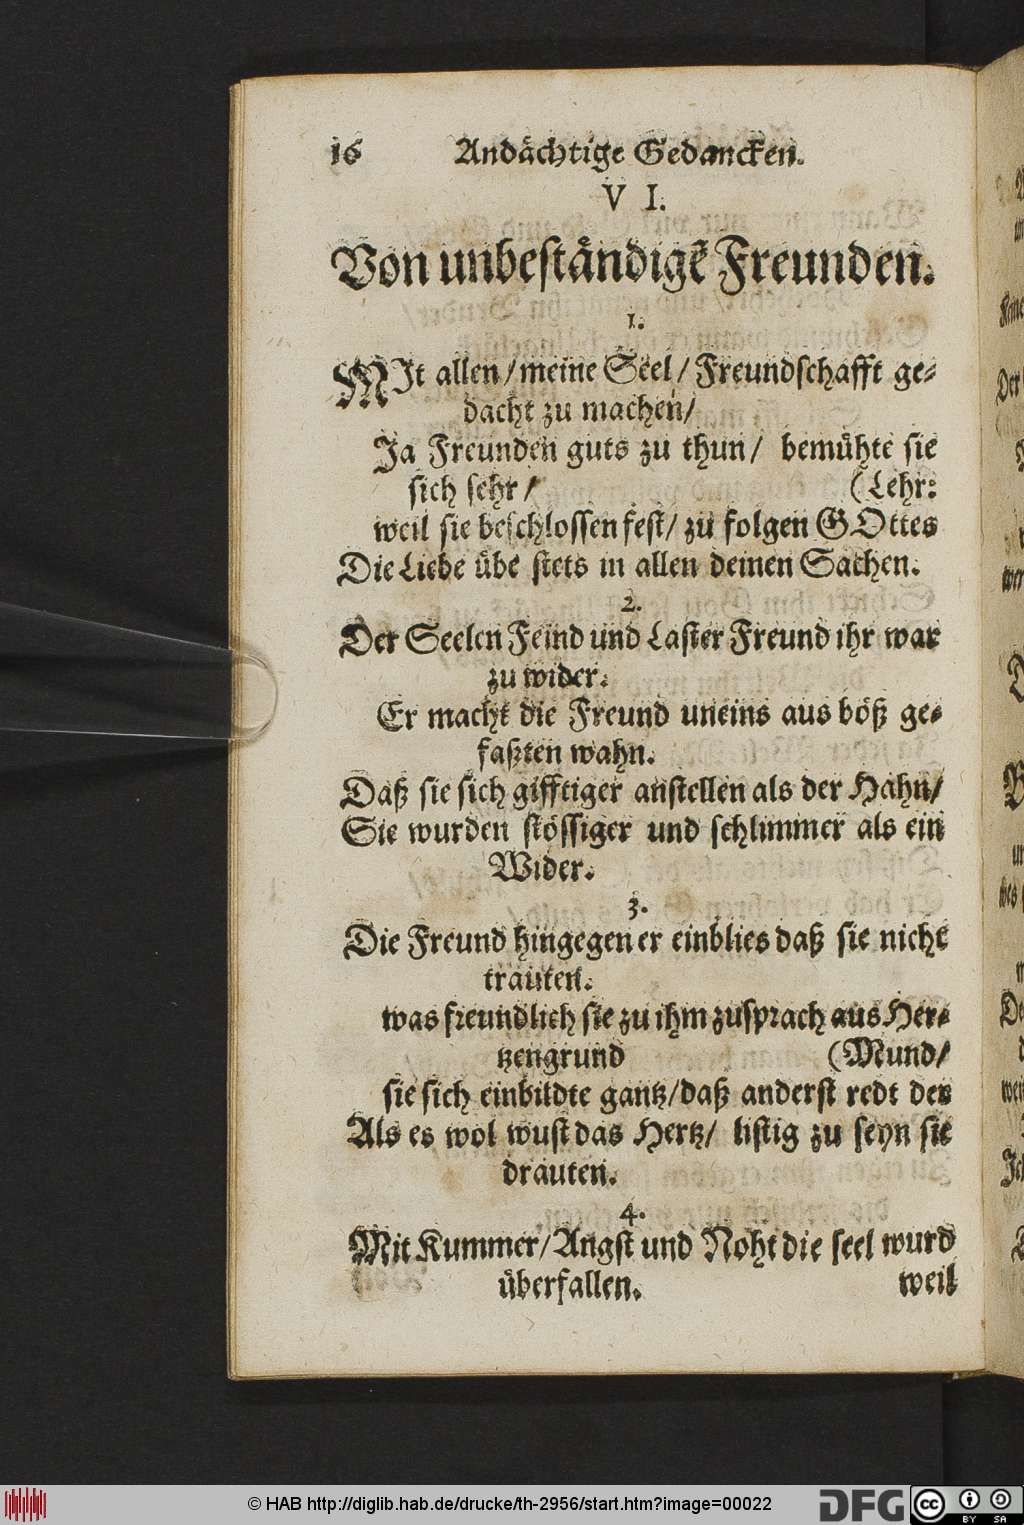 16 Andächtige Gedancken.
V I.
Von unbeständigẽ Freunden.
1.
MIt allen / meine Seel / Freundschafft ge-
dacht zu machen /
Ja Freunden guts zu thun / bemühte sie
sich sehr / (Lehr:
weil sie beschlossen fest / zu folgen GOttes
Die Liebe übe stets in allen deinen Sachen.
2.
Der Seelen Feind und Laster Freund ihr war
zu wider.
Er macht die Freund uneins aus böß ge-
faßten wahn.
Daß sie sich gifftiger anstellen als der Hahn /
Sie wurden stössiger und schlimmer als ein
Wider.
3.
Die Freund hingegen er einblies daß sie nicht
trauten.
was freundlich sie zu ihm zusprach aus Her-
tzengrund (Mund /
sie sich einbildte gantz / daß anderst redt der
Als es wol wust das Hertz / listig zu seyn sie
drauten.
4.
Mit Kummer / Angst und Noht die seel wurd
überfallen. weil
© HAB http://diglib.hab.de/drucke/th-2956/start.htm?image=00022
DFG
cc BY SA